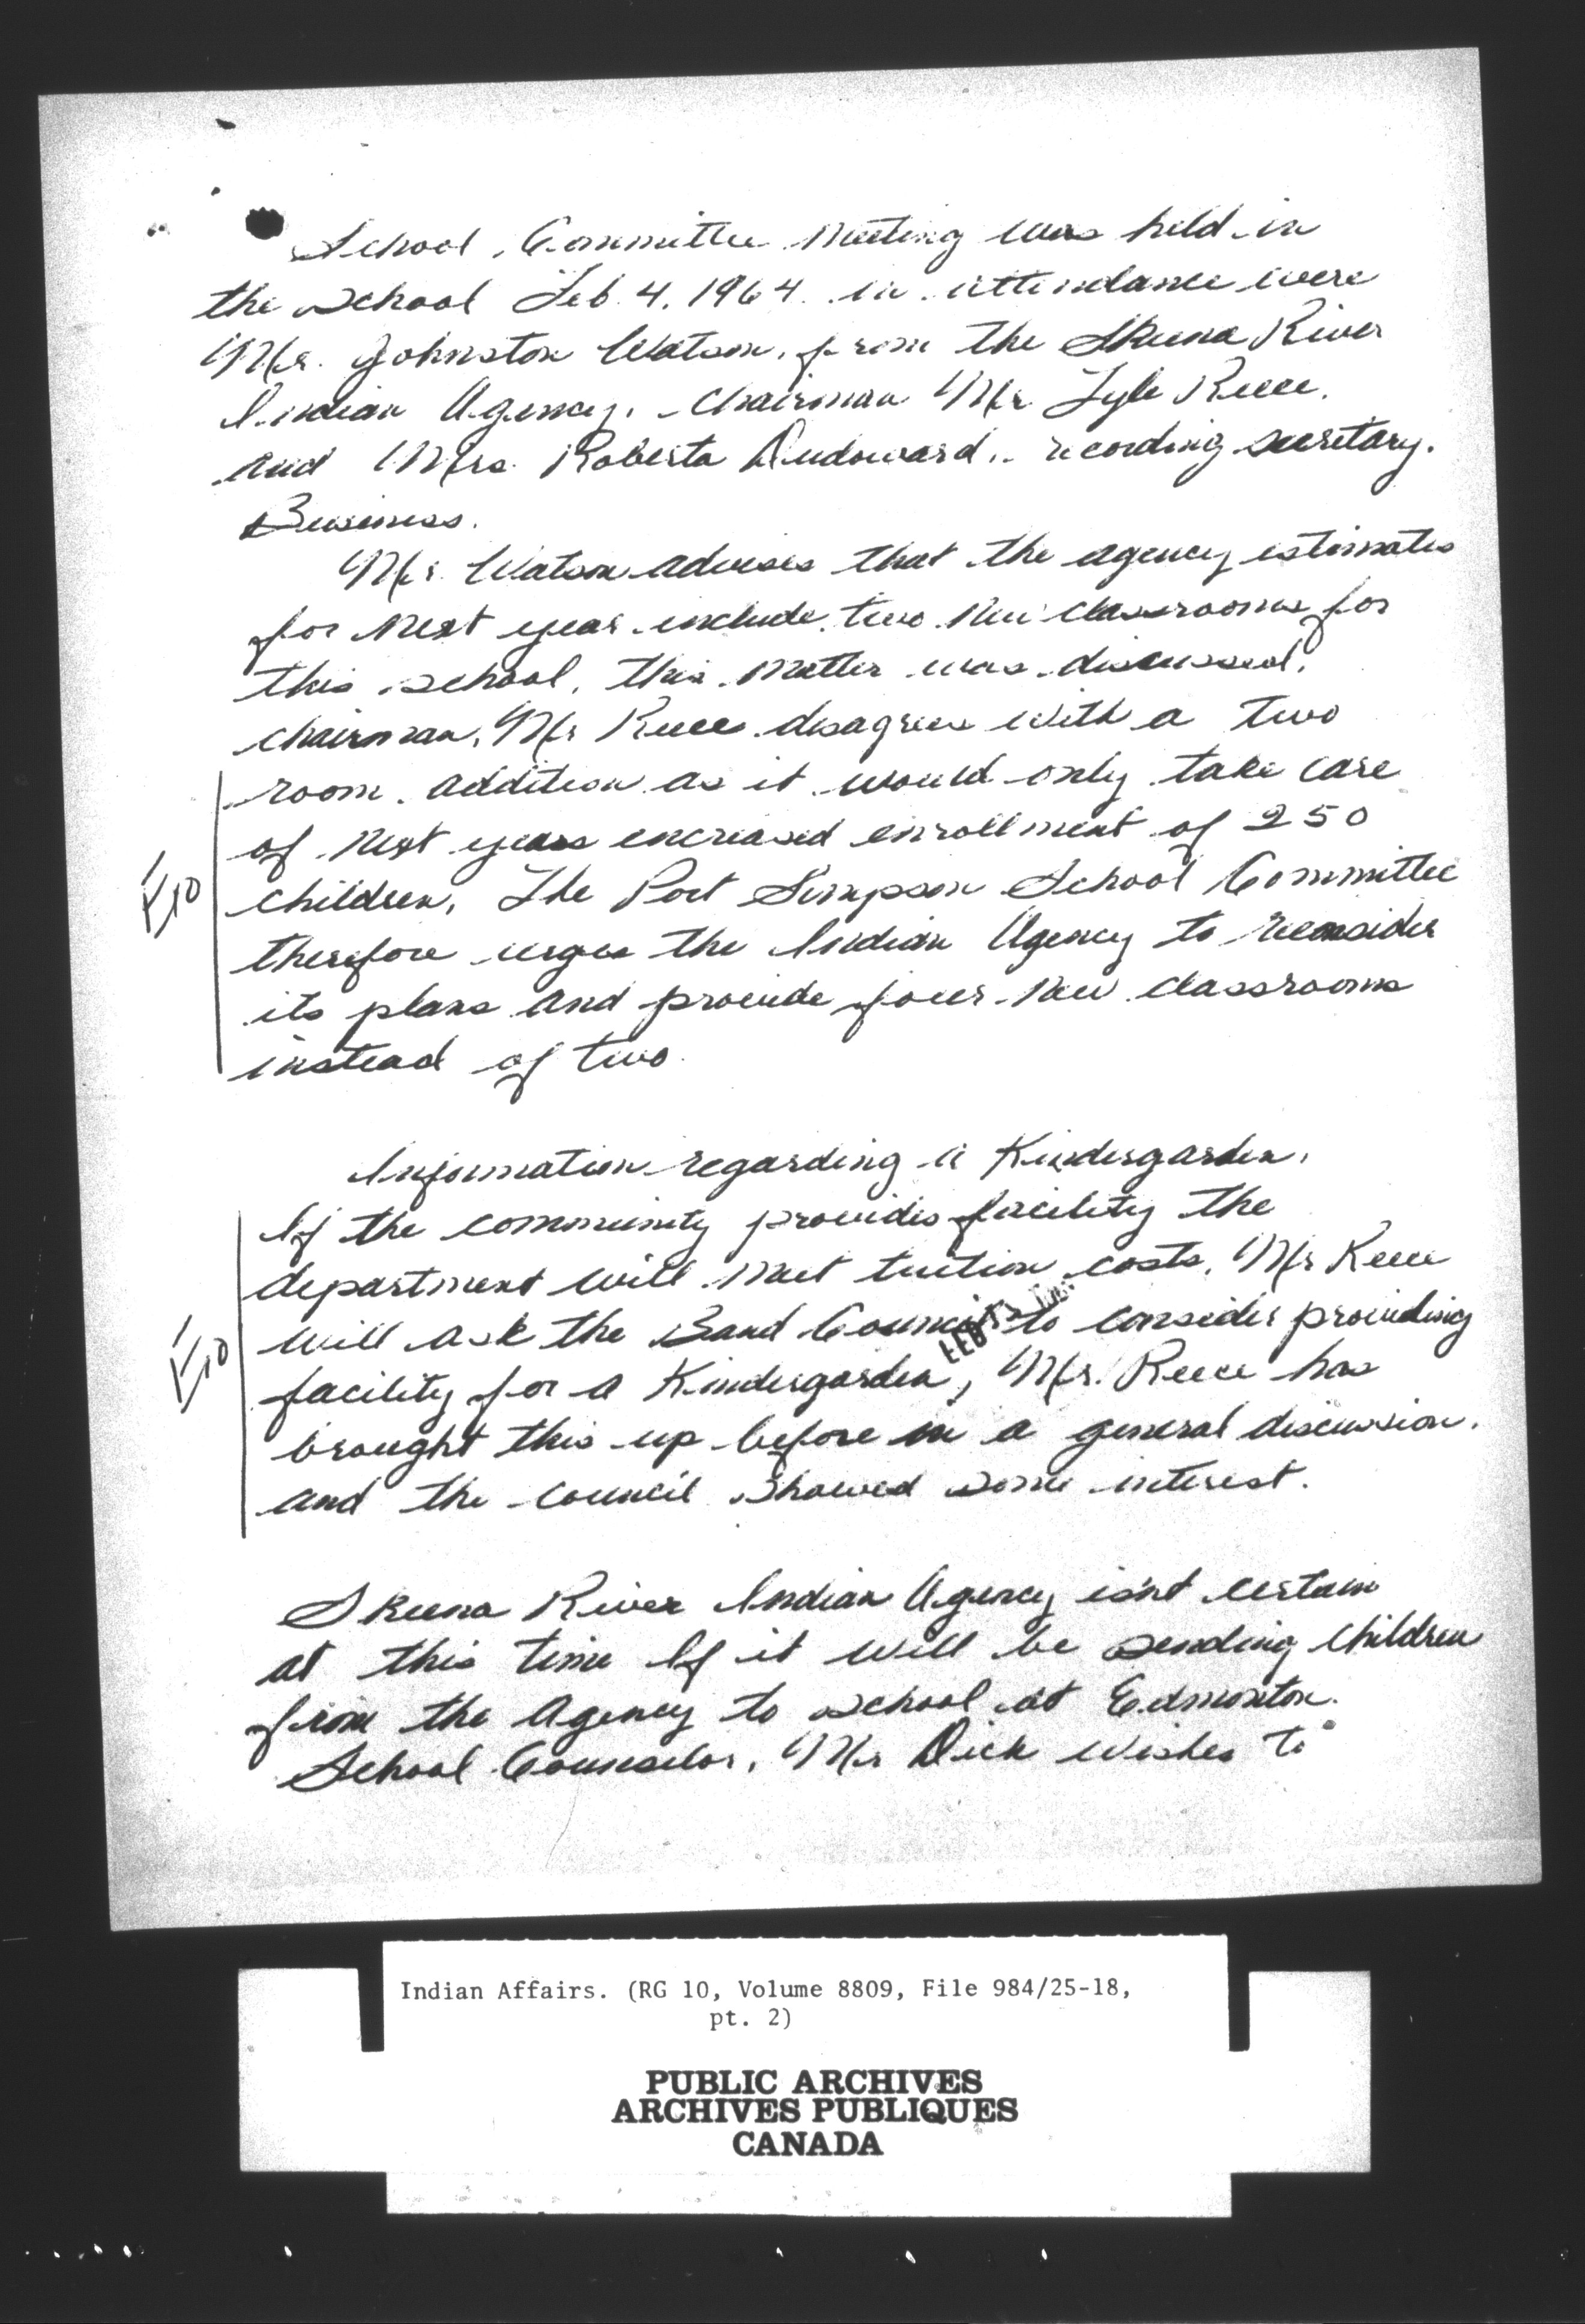 School Committee Meeting was held in
the school Feb. 4. 1964. in attendance were
Mr. Johnston Watson, from the Skeena River
Indian Agency, Chairman Mr. Lyle Reece.
and Mrs. Roberta Dudoward, recording secretary.
Business.
Mr. Watson advises that the agency estimates
for next year include two new classrooms for
this school, this matter was discussed,
chairman, Mr Reece disagrees with a two
room addition as it would only take care
of next years increased enrollment of 250
children, The Port Simpson School Committee
therefore urges the Indian Agency to reconsider
its plans and provide four new classrooms
instead of two.
Information regarding a Kindergarden,
If the community provides facility the
department will meet tuition costs, Mr Reece
will ask the Band Council to consider providing
facility for a Kindergarden, Mr. Reece has
brought this up before in a general discussion,
and the council showed some interest.
Skeena River Indian Agency isnt certain
at this time If it will be sending children
from the Agency to school at Edmonton.
School Counselor, Mr Dick wishes to
Indian Affairs. (RG 10, Volume 8809, File 984/25-18,
pt. 2)
PUBLIC ARCHIVES
ARCHIVES PUBLIQUES
CANADA